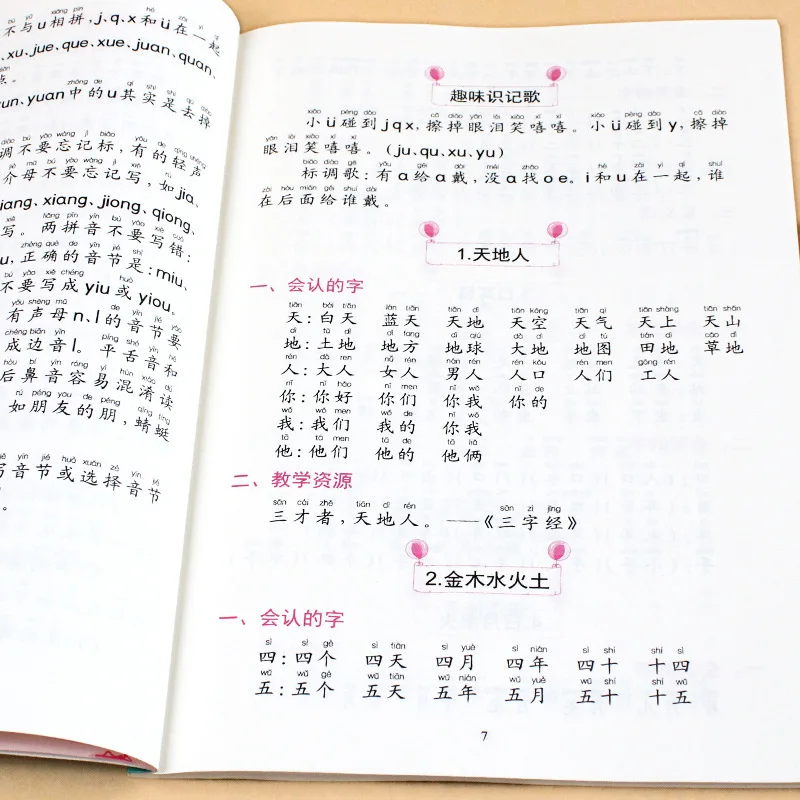 bù yǔ xiāng pīn hé zài yì qǐ
不与u相拼，j、q、x和ü在一起
、xu、jue、que、xue、juan、quan、
diǎn
点。
zhōng de qí shí shì qù diào
un、yuan中的u其实是去掉
diào bú yào wàng jì biāo yǒu de qīng shēng
调不要忘记标，有的轻声
jiè mǔ bú yào wàng jì xiě rú
介母不要忘记写，如jia、
iang、xiang、jiong、qiong、
xiě liǎng pīn yīn bú yào xiě cuò
写。两拼音不要写错：
zhèng què de yīn jié shì
u，正确的音节是：miu、
bú yào xiě chéng huò
不要写成yiu或yiou。
yǒu shēng mǔ de yīn jié yào
有声母n、l的音节要
chéng biān yīn píng shé yīn hé
成边音l。平舌音和
hòu bí yīn róng yì hùn xiáo dú
后鼻音容易混淆读
rú péng you de péng qīng tíng
如朋友的朋，蜻蜓
xiě yīn jié huò xuǎn zé yīn jié
写音节或选择音节
。
趣味识记歌
xiǎo pèng dào cā diào yǎn lèi xiào xī xī xiǎo pèng dào cā diào
小ü碰到jqx，擦掉眼泪笑嘻嘻。小ü碰到y，擦掉
yǎn lèi xiào xī xī
眼泪笑嘻嘻。（ju、qu、xu、yu）
biāo diào gē yǒu gěi dài méi zhǎo hé zài yì qǐ shuí
标调歌：有a给a戴，没a找oe。i和u在一起，谁
zài hòu miàn gěi shuí dài
在后面给谁戴。
1.天地人
一、会认的字
tiān bái tiān lán tiān tiān dì tiān kōng tiān qì tiān shàng tiān shān
天：白天 蓝天 天地 天空 天气 天上 天山
dì tǔ dì dì fang dì qiú dà dì dì tú tián dì cǎo dì
地：土地 地方 地球 大地 地图 田地 草地
rén dà rén nǚ rén nán rén rén kǒu rén men gōng rén
人：大人 女人 男人 人口 人们 工人
nǐ nǐ hǎo nǐ men nǐ wǒ nǐ de
你：你好 你们 你我 你的
wǒ wǒ men wǒ de nǐ wǒ
我：我们 我的 你我
tā tā men tā de tā liǎ
他：他们 他的 他俩
二、教学资源
sān cái zhě tiān dì rén sān zì jīng
三才者，天地人。——《三字经》
2.金木水火土
一、会认的字
sì sì gè sì tiān sì yuè sì nián sì shí shí sì
四：四个 四天 四月 四年 四十 十四
wǔ wǔ gè wǔ tiān wǔ nián wǔ yuè wǔ shí shí wǔ
五：五个 五天 五年 五月 五十 十五
7